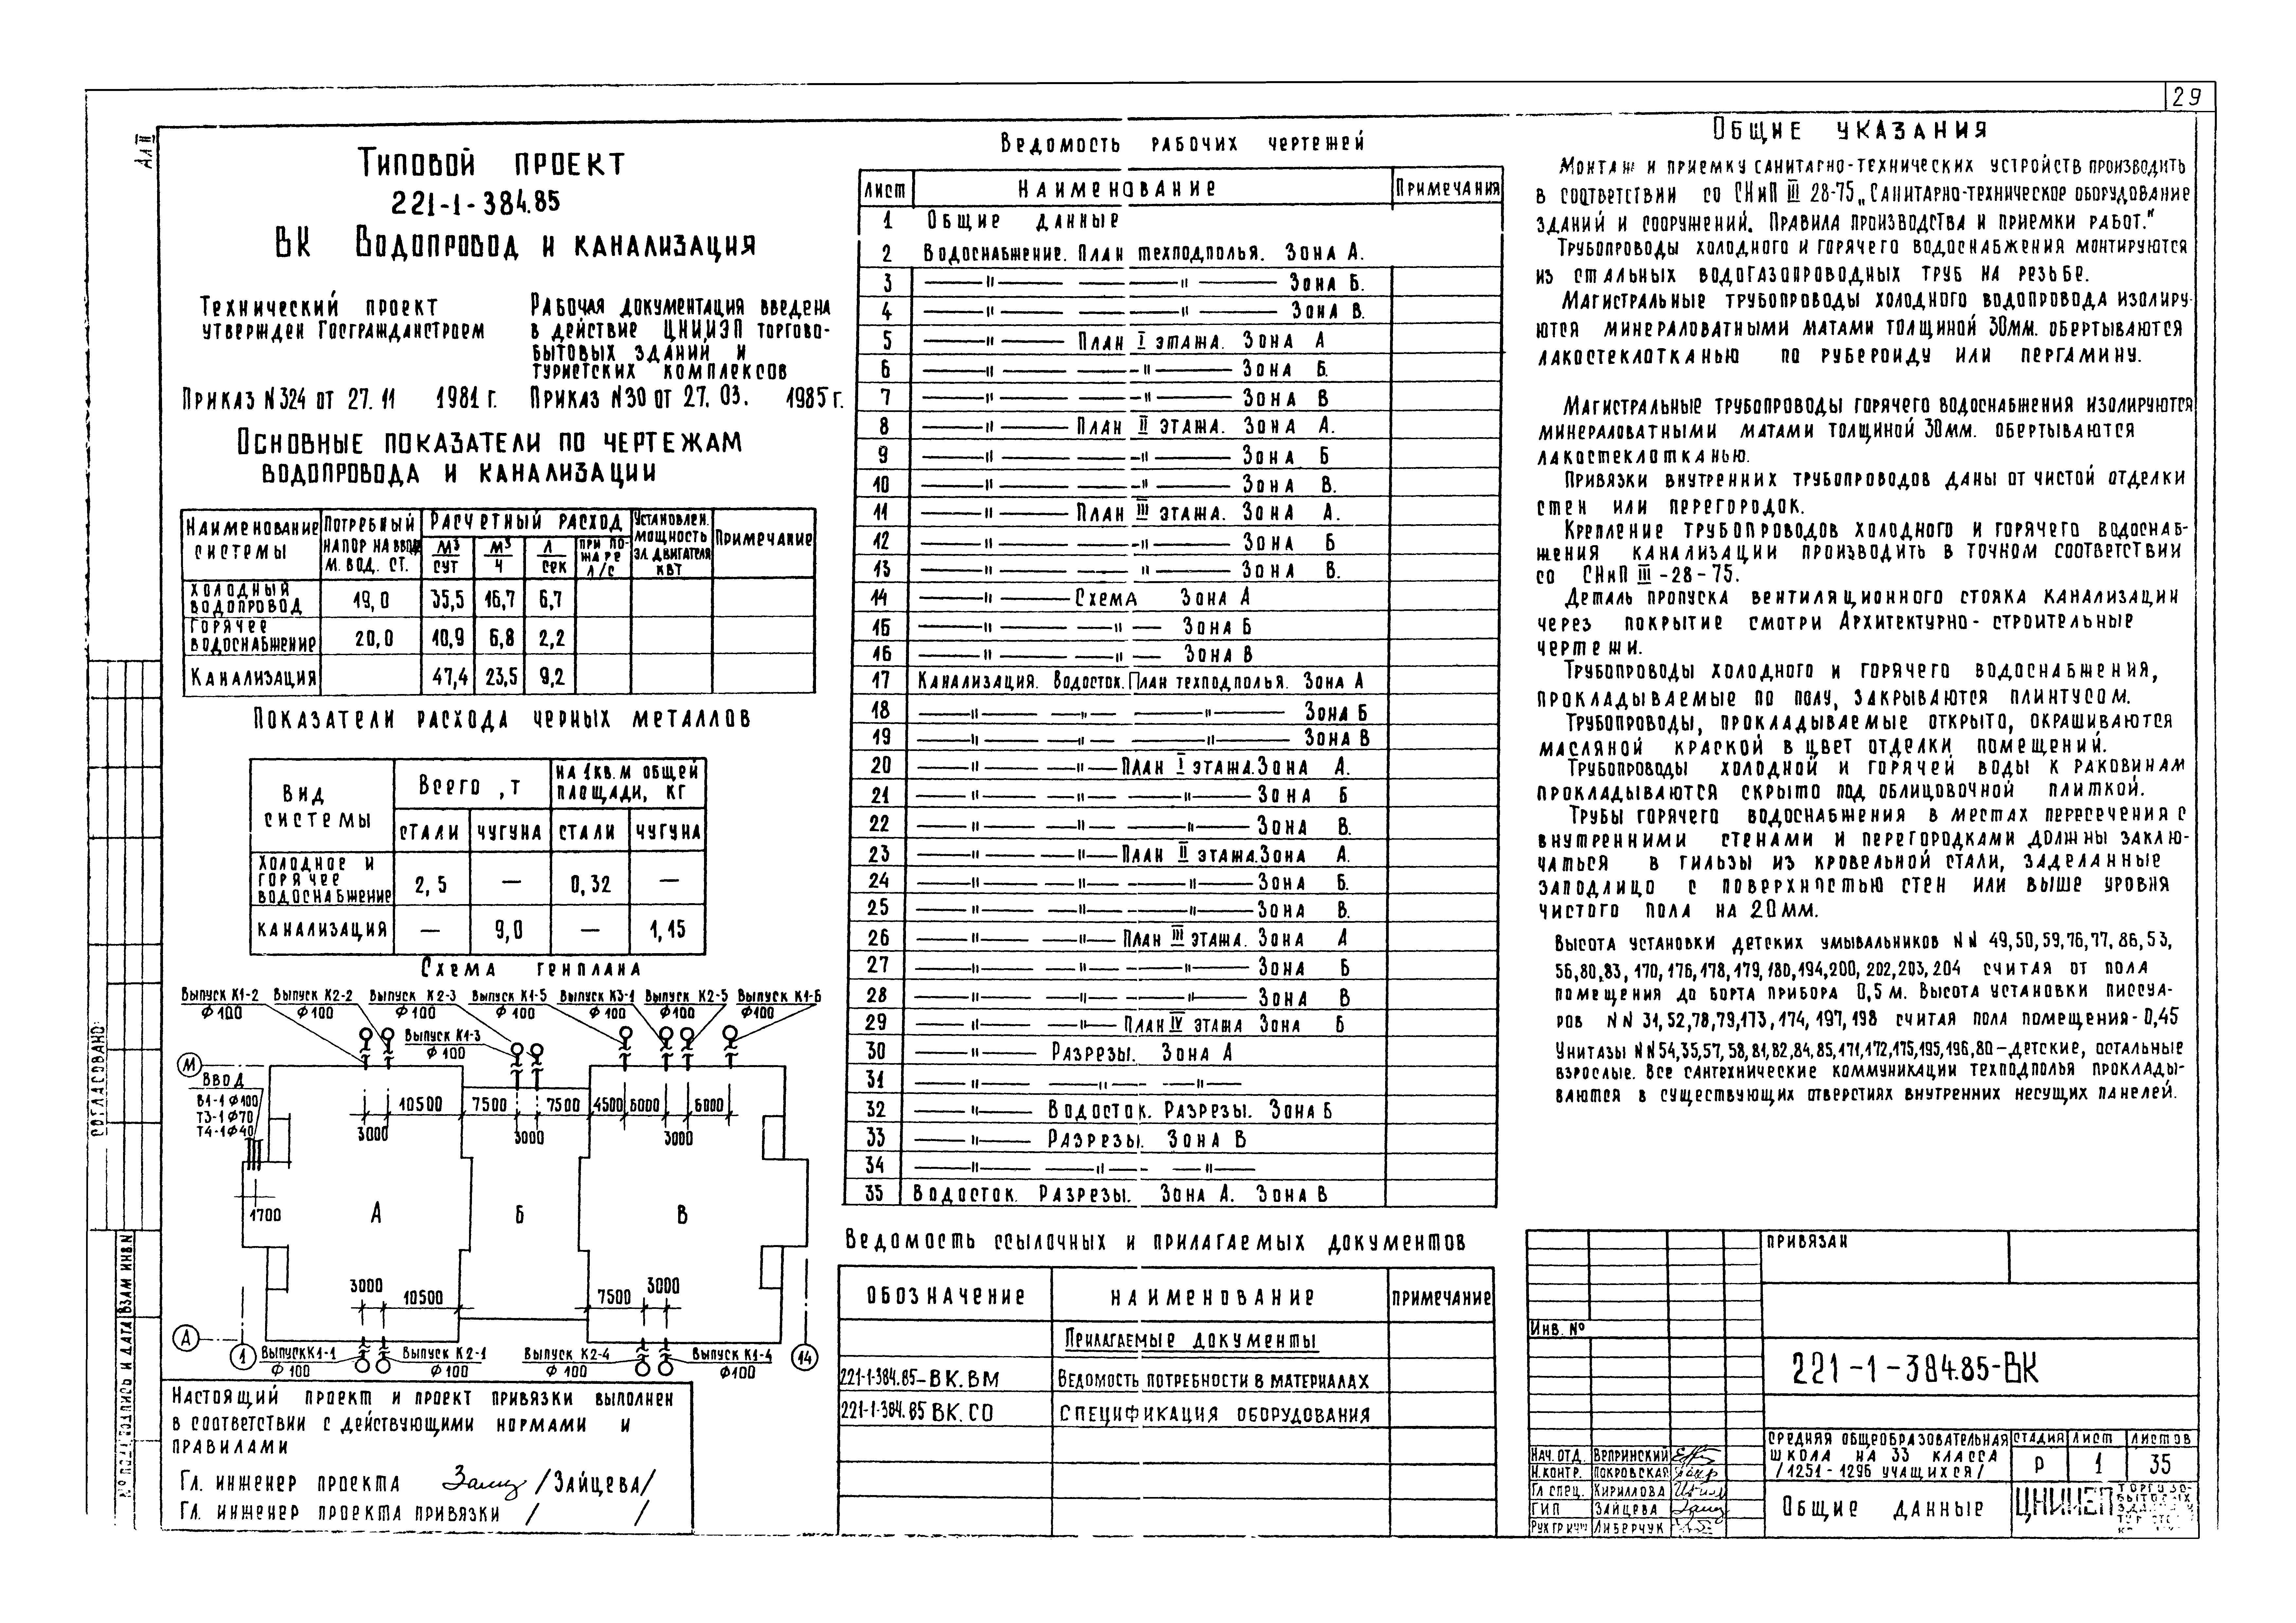 29
Ал II
Типовой проект
221-1-384.85
ВК Водопровод и канализация
Технический проект
утвержден Госгражданстроем
Приказ N324 от 27.11 1981 г.
Рабочая документация введена
в действие ЦНИИЭП торгово-
бытовых зданий и
туристских комплексов
Приказ N30 от 27.03. 1985 г.
Основные показатели по чертежам
водопровода и канализации
Наименование системы | Потребный напор на вводе м. вод. ст. | Расчетный расход | Установлен. мощность эл. двигателя квт | Примечание
м3/сут | м3/ч | л/сек | при пожаре л/с
Холодный водопровод | 19,0 | 35,5 | 16,7 | 6,7
Горячее водоснабжение | 20,0 | 10,9 | 6,8 | 2,2
Канализация | 47,4 | 23,5 | 9,2
Показатели расхода черных металлов
Вид системы | Всего, т | на 1 кв.м общей площади, кг
стали | чугуна | стали | чугуна
Холодное и горячее водоснабжение | 2,5 | — | 0,32 | —
канализация | — | 9,0 | — | 1,15
Схема генплана
Выпуск К1-2 Выпуск К2-2 Выпуск К2-3 Выпуск К1-5 Выпуск К3-1 Выпуск К2-5 Выпуск К1-6
Ф100 Ф100 Ф100 Ф100 Ф100 Ф100 Ф100
Выпуск К1-3
Ф100
М
Ввод
В1-1 Ф100
Т3-1 Ф70
Т4-1 Ф40
10500 7500 7500 4500 6000 6000
3000 3000 3000
1700
А Б В
3000 10500 7500 3000
А
1
14
Выпуск К1-1 Выпуск К2-1 Выпуск К2-4 Выпуск К1-4
Ф100 Ф100 Ф100 Ф100
Настоящий проект и проект привязки выполнен
в соответствии с действующими нормами и
правилами
Гл. инженер проекта /Зайцева/
Гл. инженер проекта привязки / /
Согласовано:
N° подл. Подпись и дата Взам инв.N
Ведомость рабочих чертежей
лист | Наименование | Примечания
1 Общие данные
2 Водоснабжение. План техподполья. Зона А.
3 —"— —"— Зона Б.
4 —"— —"— Зона В.
5 —"— План I этажа. Зона А
6 —"— —"— Зона Б.
7 —"— —"— Зона В
8 —"— План II этажа. Зона А.
9 —"— —"— Зона Б
10 —"— —"— Зона В.
11 —"— План III этажа. Зона А.
12 —"— —"— Зона Б
13 —"— —"— Зона В.
14 —"— Схема Зона А
15 —"— —"— Зона Б
16 —"— —"— Зона В
17 Канализация. Водосток. План техподполья. Зона А
18 —"— —"— —"— Зона Б
19 —"— —"— —"— Зона В
20 —"— —"— План I этажа. Зона А.
21 —"— —"— —"— Зона Б
22 —"— —"— —"— Зона В.
23 —"— —"— План II этажа. Зона А.
24 —"— —"— —"— Зона Б.
25 —"— —"— —"— Зона В.
26 —"— —"— План III этажа. Зона А
27 —"— —"— —"— Зона Б
28 —"— —"— —"— Зона В
29 —"— —"— План IV этажа Зона Б
30 —"— Разрезы. Зона А
31 —"— —"— —"—
32 —"— Водосток. Разрезы. Зона Б
33 —"— Разрезы. Зона В
34 —"— —"— —"—
35 Водосток. Разрезы. Зона А. Зона В
Ведомость ссылочных и прилагаемых документов
Обозначение | Наименование | Примечание
Прилагаемые документы
221-1-384.85-ВК.ВМ | Ведомость потребности в материалах
221-1-384.85 ВК.СО | Спецификация оборудования
Общие указания
Монтаж и приемку санитарно-технических устройств производить
в соответствии со СНиП III 28-75 „Санитарно-техническое оборудование
зданий и сооружений. Правила производства и приемки работ."
Трубопроводы холодного и горячего водоснабжения монтируются
из стальных водогазопроводных труб на резьбе.
Магистральные трубопроводы холодного водопровода изолиру-
ются минераловатными матами толщиной 30мм. обертываются
лакостеклотканью по рубероиду или пергамину.
Магистральные трубопроводы горячего водоснабжения изолируются
минераловатными матами толщиной 30мм. обертываются
лакостеклотканью.
Привязки внутренних трубопроводов даны от чистой отделки
стен или перегородок.
Крепление трубопроводов холодного и горячего водоснаб-
жения канализации производить в точном соответствии
со СНиП III-28-75.
Деталь пропуска вентиляционного стояка канализации
через покрытие смотри Архитектурно-строительные
чертежи.
Трубопроводы холодного и горячего водоснабжения,
прокладываемые по полу, закрываются плинтусом.
Трубопроводы, прокладываемые открыто, окрашиваются
масляной краской в цвет отделки помещений.
Трубопроводы холодной и горячей воды к раковинам
прокладываются скрыто под облицовочной плиткой.
Трубы горячего водоснабжения в местах пересечения с
внутренними стенами и перегородками должны заклю-
чаться в гильзы из кровельной стали, заделанные
заподлицо с поверхностью стен или выше уровня
чистого пола на 20мм.
Высота установки детских умывальников NN 49,50,59,76,77,86,53,
56,80,83,170,176,178,179,180,194,200,202,203,204 считая от пола
помещения до борта прибора 0,5м. Высота установки писсуа-
ров NN 31,52,78,79,173,174,197,198 считая пола помещения-0,45
Унитазы NN54,35,57,58,81,82,84,85,171,172,175,195,196,80-детские, остальные
взрослые. Все сантехнические коммуникации техподполья проклады-
ваются в существующих отверстиях внутренних несущих панелей.
Привязан
Инв. N°
221-1-384.85-ВК
Нач. отд. Вепринский
Н.контр. Покровская
Гл спец. Кириллова
ГИП Зайцева
Рук гр Либерчук
Средняя общеобразовательная
школа на 33 класса
/1251-1296 учащихся/
стадия | лист | листов
Р | 1 | 35
Общие данные
ЦНИИЭП